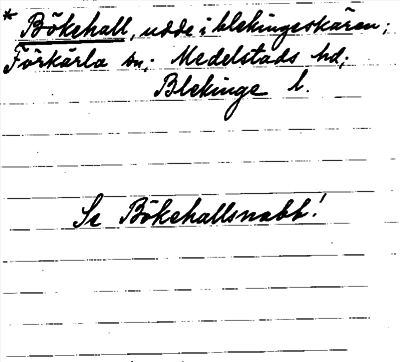 * Bökehall, udde i blekingeskären;
Förkärla sn; Medelstads hd;
Blekinge l.
Se Bökehallsnabb!